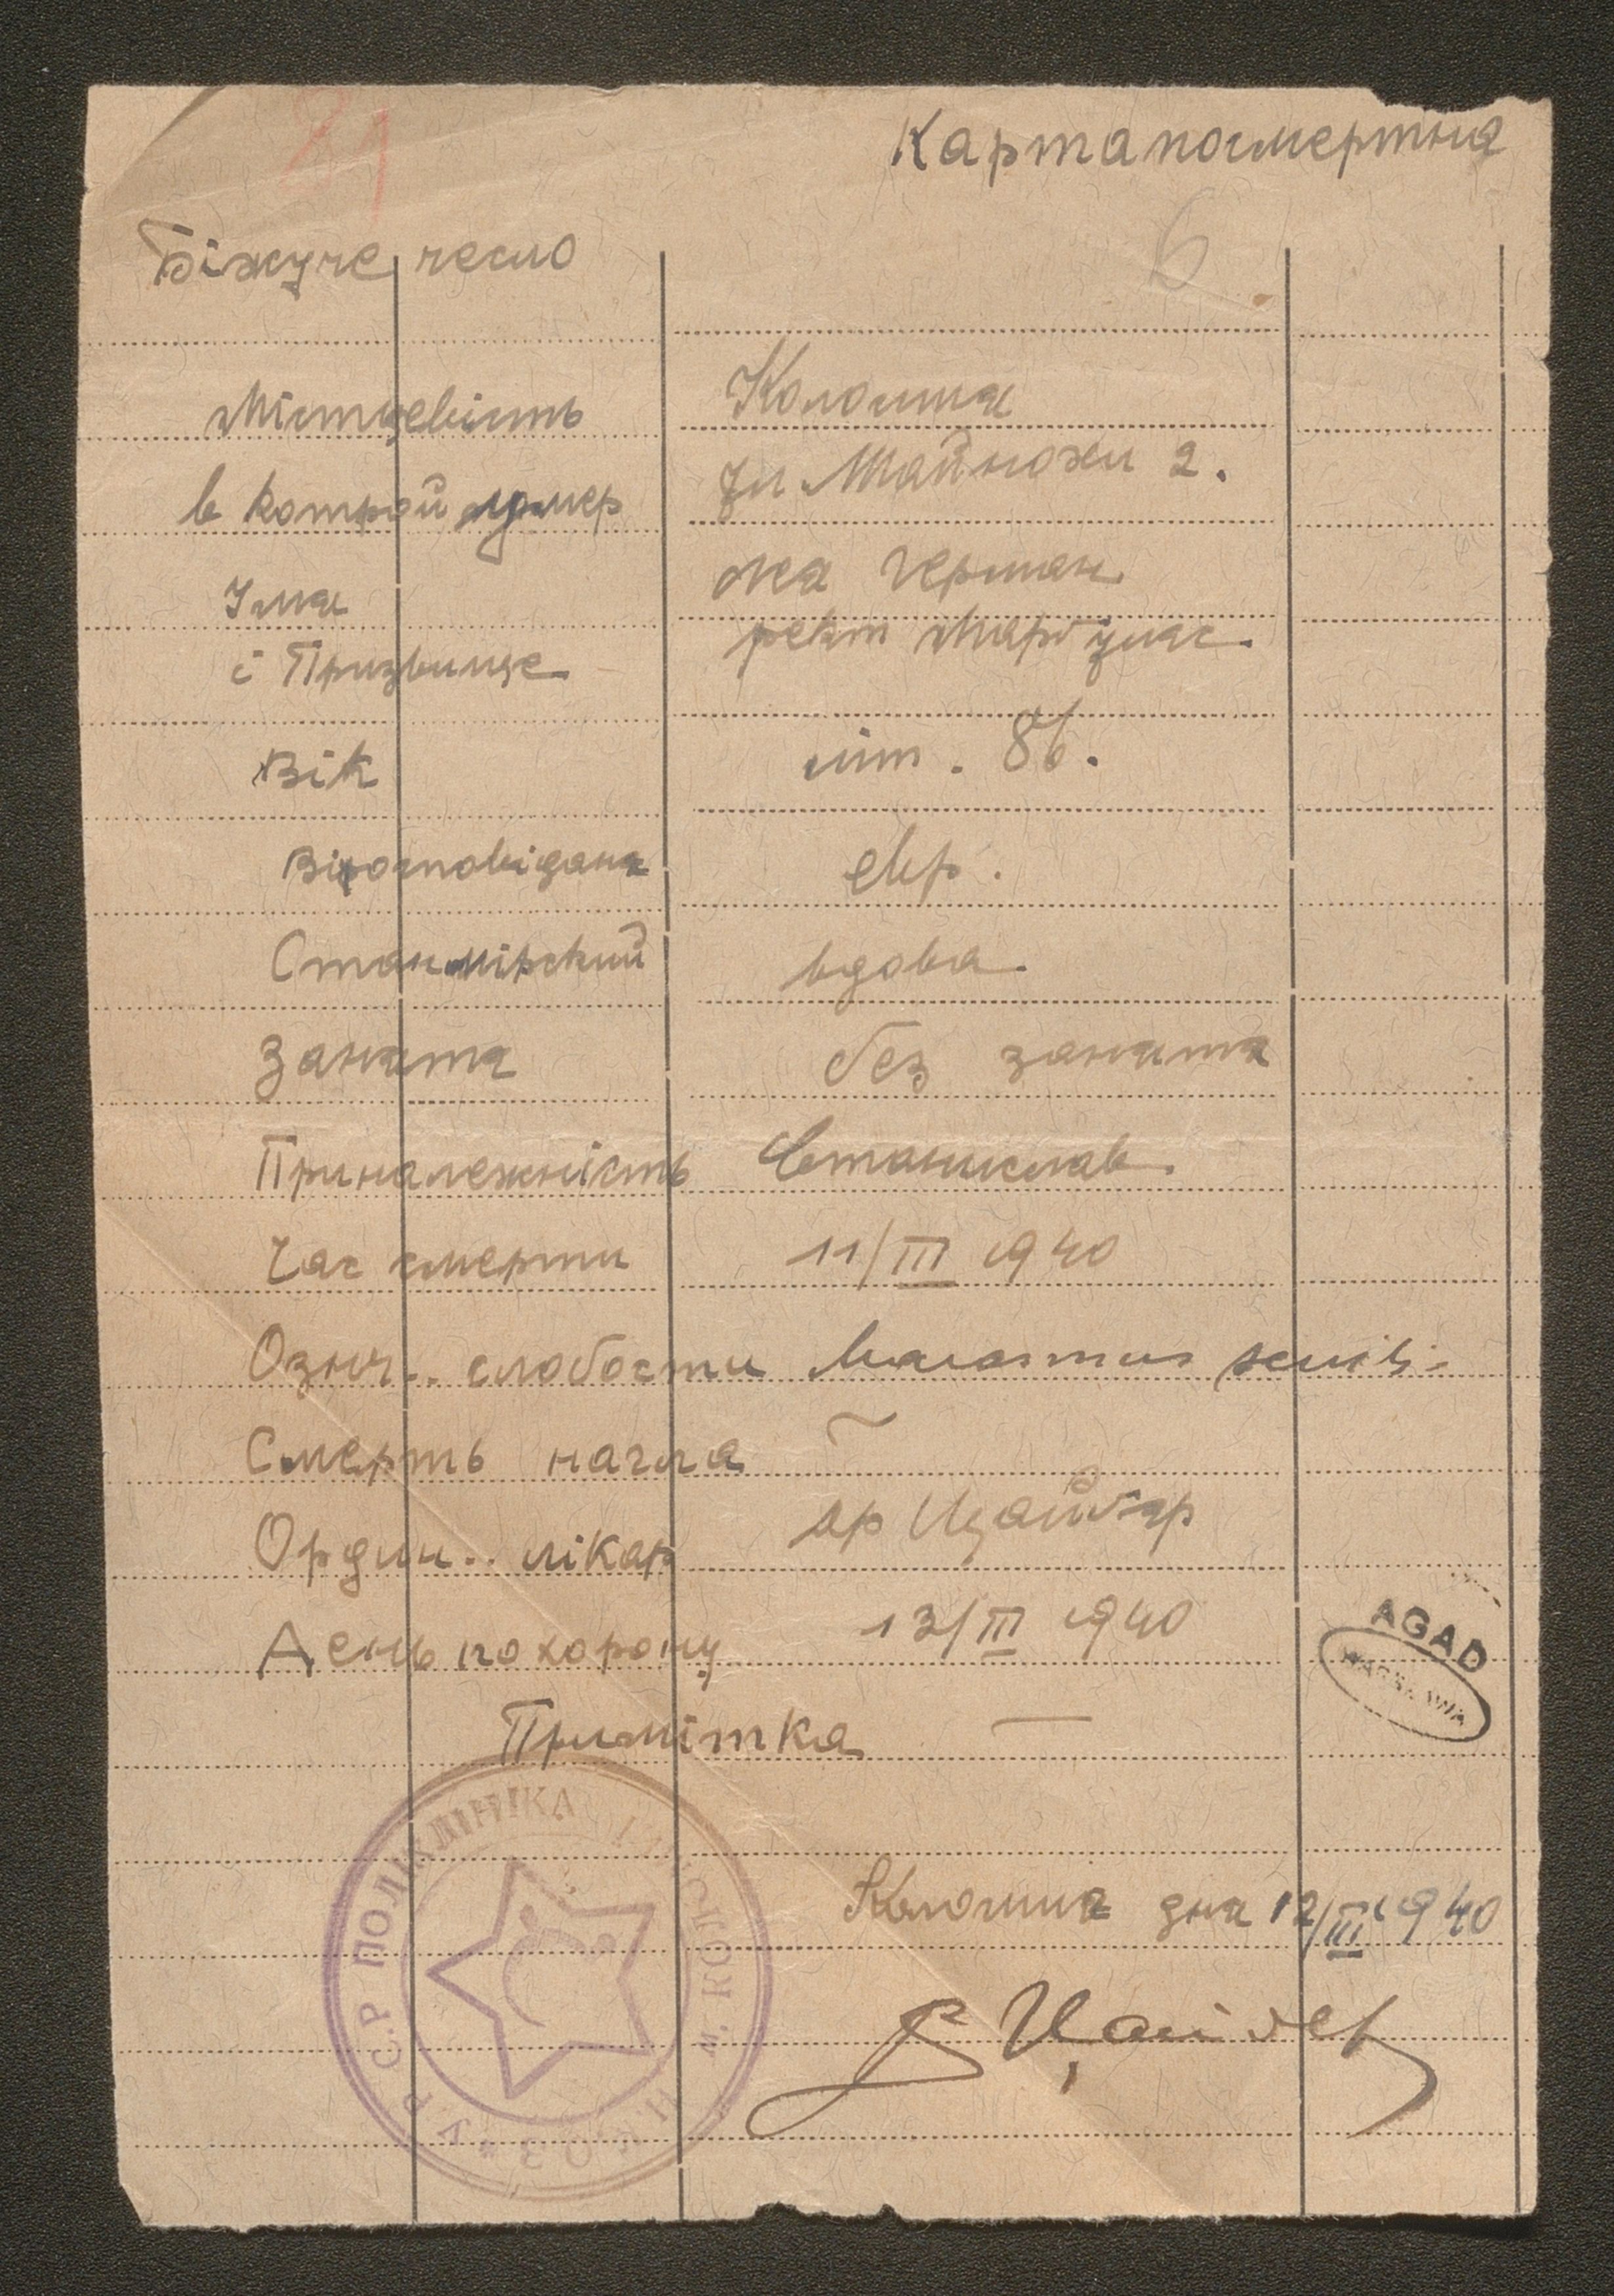 21
Карта посмертна
6
Біжуче число
Містцевість Коломия
в котрой умер Ул Шайнохи 2.
Імя Леа Герман
і Призвище рект Марґулис.
Вік літ. 86.
Віроісповіданя євр.
Стан мірский вдова.
Занятя без занятя
Приналежність Станиславів.
Час смерти 11/III 1940
Ознч.. слабости Marasmus senilis
Смерть нагла
Ордин.. лікар др Цайґер
День похорону 13/III 1940
Примітка —
Коломия дня 12/III 1940
AGAD
WARSZAWA
У.Р.С.Р ПОЛІКЛІНІКА